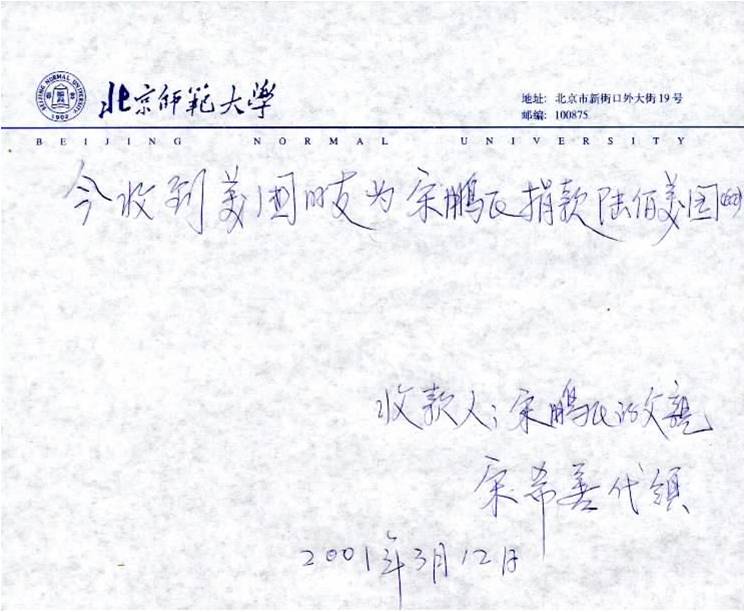 BEIJING NORMAL UNIVERSITY
1902
北京师范大学
地址: 北京市新街口外大街19号
邮编: 100875
BEIJING NORMAL UNIVERSITY
今收到美国朋友为宋鹏民捐款陆佰美圆
收款人:宋鹏民的父親
宋希善代領
2001年3月12日